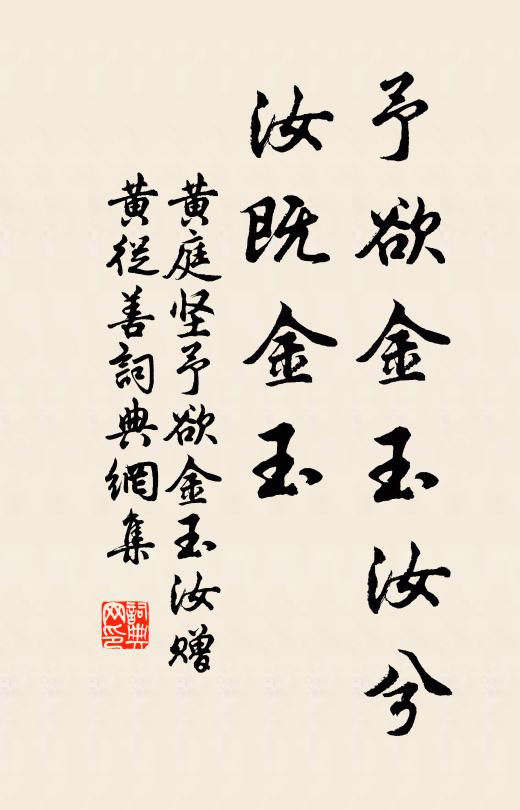 予欲金玉汝兮
汝既金玉
黄庭坚予欲金玉汝赠
黄從善詞典網集
詞典网印